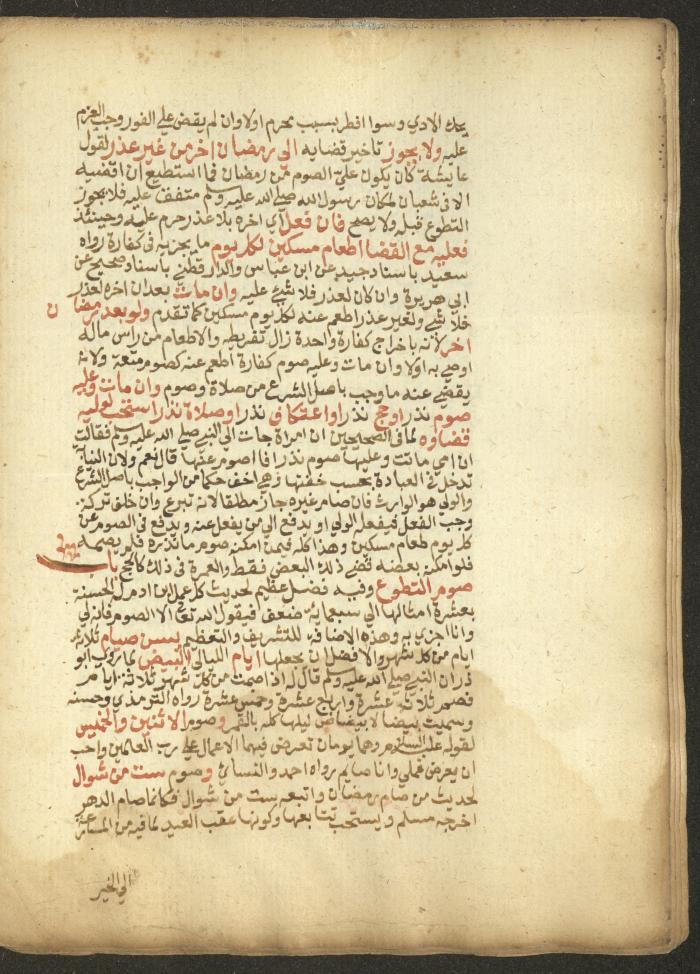 الاداي وسوا افطر بسبب محرم اولا وان لم يقض على الفور وجب العزم
عليه ولا يجوز تاخير قضايه الى رمضان اخر من غير عذر لقول
عايشة كان يكون علي الصوم من رمضان فما استطيع ان اقضيه
الا في شعبان لمكان رسول الله صلى الله عليه وسلم متفق عليه فلا يجوز
التطوع قبله ولا يصح فان فعل اي اخره بلا عذر حرم عليه وحينئذ
فعليه مع القضا اطعام مسكين لكل يوم ما يجزيه في كفارة رواه
سعيد باسناد جيد عن ابن عباس والدارقطني باسناد صحيح عن
ابي هريرة وان كان لعذر فلا شي عليه وان مات بعد ان اخره لعذر
فلا شي ولغير عذر اطعم عنه لكل يوم مسكين كما تقدم ولو بعد رمضان
اخر لانه باخراج كفارة واحدة زال تفريطه والاطعام من راس ماله
اوصى به اولا وان مات وعليه صوم كفارة اطعم عنه كصوم متعة ولا
يقضى عنه ما وجب باصل الشرع من صلاة وصوم وان مات وعليه
صوم نذر او حج نذر او اعتكاف نذر او صلاة نذر استحب لوليه
قضاوه لما في الصحيحين ان امراة جات الى النبي صلى الله عليه وسلم فقالت
ان امي ماتت وعليها صوم نذر افا اصوم عنها قال نعم ولان النيابة
تدخل في العبادة بحسب خفتها وهو اخف حكما من الواجب باصل الشرع
والولي هو الوارث فان صام غيره جاز مطلقا لانه تبرع وان خلف تركة
وجب الفعل فيفعله الولي او يدفع الى من يفعل عنه ويدفع في الصوم عن
كل يوم طعام مسكين وهذا كله فيمن امكنه صوم ما نذره فلم يصمه
فلو امكنه بعضه قضي ذلك البعض فقط والعمرة في ذلك كالحج باب
صوم التطوع وفيه فضل عظيم لحديث كل عمل ابن ادم له الحسنة
بعشرة امثالها الى سبعماية ضعف فيقول الله تعالى الا الصوم فانه لي
وانا اجزي به وهذه الاضافة للتشريف والتعظيم يسن صيام ثلاثة
ايام من كل شهر والافضل ان يجعلها ايام الليالي البيض لما روى ابو
ذر ان النبي صلى الله عليه وسلم قال له اذا صمت من كل شهر ثلاثة ايام
فصم ثلاث عشرة واربع عشرة وخمس عشرة رواه الترمذي وحسنه
وسميت بيضا لابيضاض ليلها كله بالقمر وصوم الاثنين والخميس
لقوله عليه السلام هما يومان تعرض فيهما الاعمال على رب العالمين واحب
ان يعرض عملي وانا صايم رواه احمد والنساي وصوم ست من شوال
لحديث من صام رمضان واتبعه ست من شوال فكانما صام الدهر
اخرجه مسلم ويستحب تتابعها وكونها عقب العيد لما فيه من المسارعة
الى الخير